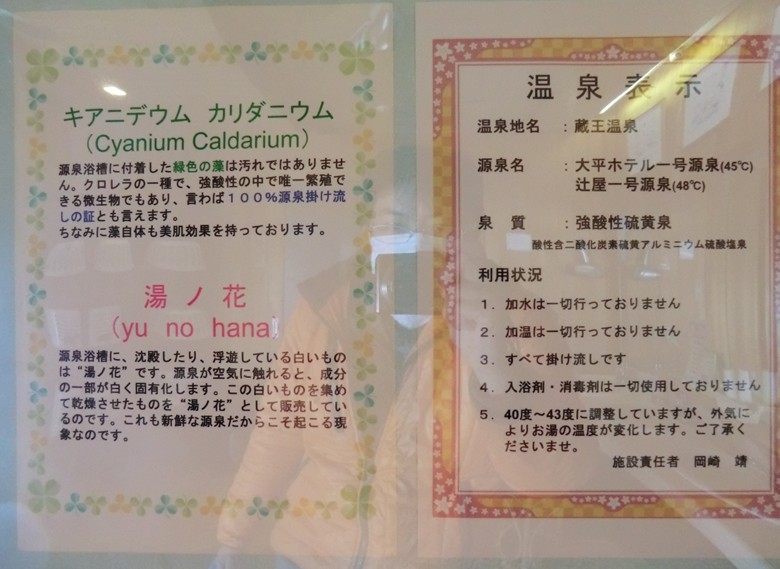 キアニデウム カリダニウム
(Cyanium Caldarium)
源泉浴槽に付着した緑色の藻は汚れではありませ
ん。クロレラの一種で、強酸性の中で唯一繁殖で
きる微生物でもあり、言わば１００％源泉掛け流
しの証とも言えます。
ちなみに藻自体も美肌効果を持っております。
湯ノ花
(yu no hana)
源泉浴槽に、沈殿したり、浮遊している白いもの
は“湯ノ花”です。源泉が空気に触れると、成分
の一部が白く固有化します。この白いものを集め
て乾燥させたものを“湯ノ花”として販売してい
るのです。これも新鮮な源泉だからこそ起こる現
象なのです。
温泉表示
温泉地名 ：蔵王温泉
源泉名 ：大平ホテル一号源泉(45℃)
辻屋一号源泉(48℃)
泉質 ：強酸性硫黄泉
酸性含二酸化炭素硫黄アルミニウム硫酸塩泉
利用状況
１．加水は一切行っておりません
２．加温は一切行っておりません
３．すべて掛け流しです
４．入浴剤・消毒剤は一切使用しておりません
５．40度～43度に調整していますが、外気に
よりお湯の温度が変化します。ご了承く
ださいませ。
施設責任者 岡崎 靖